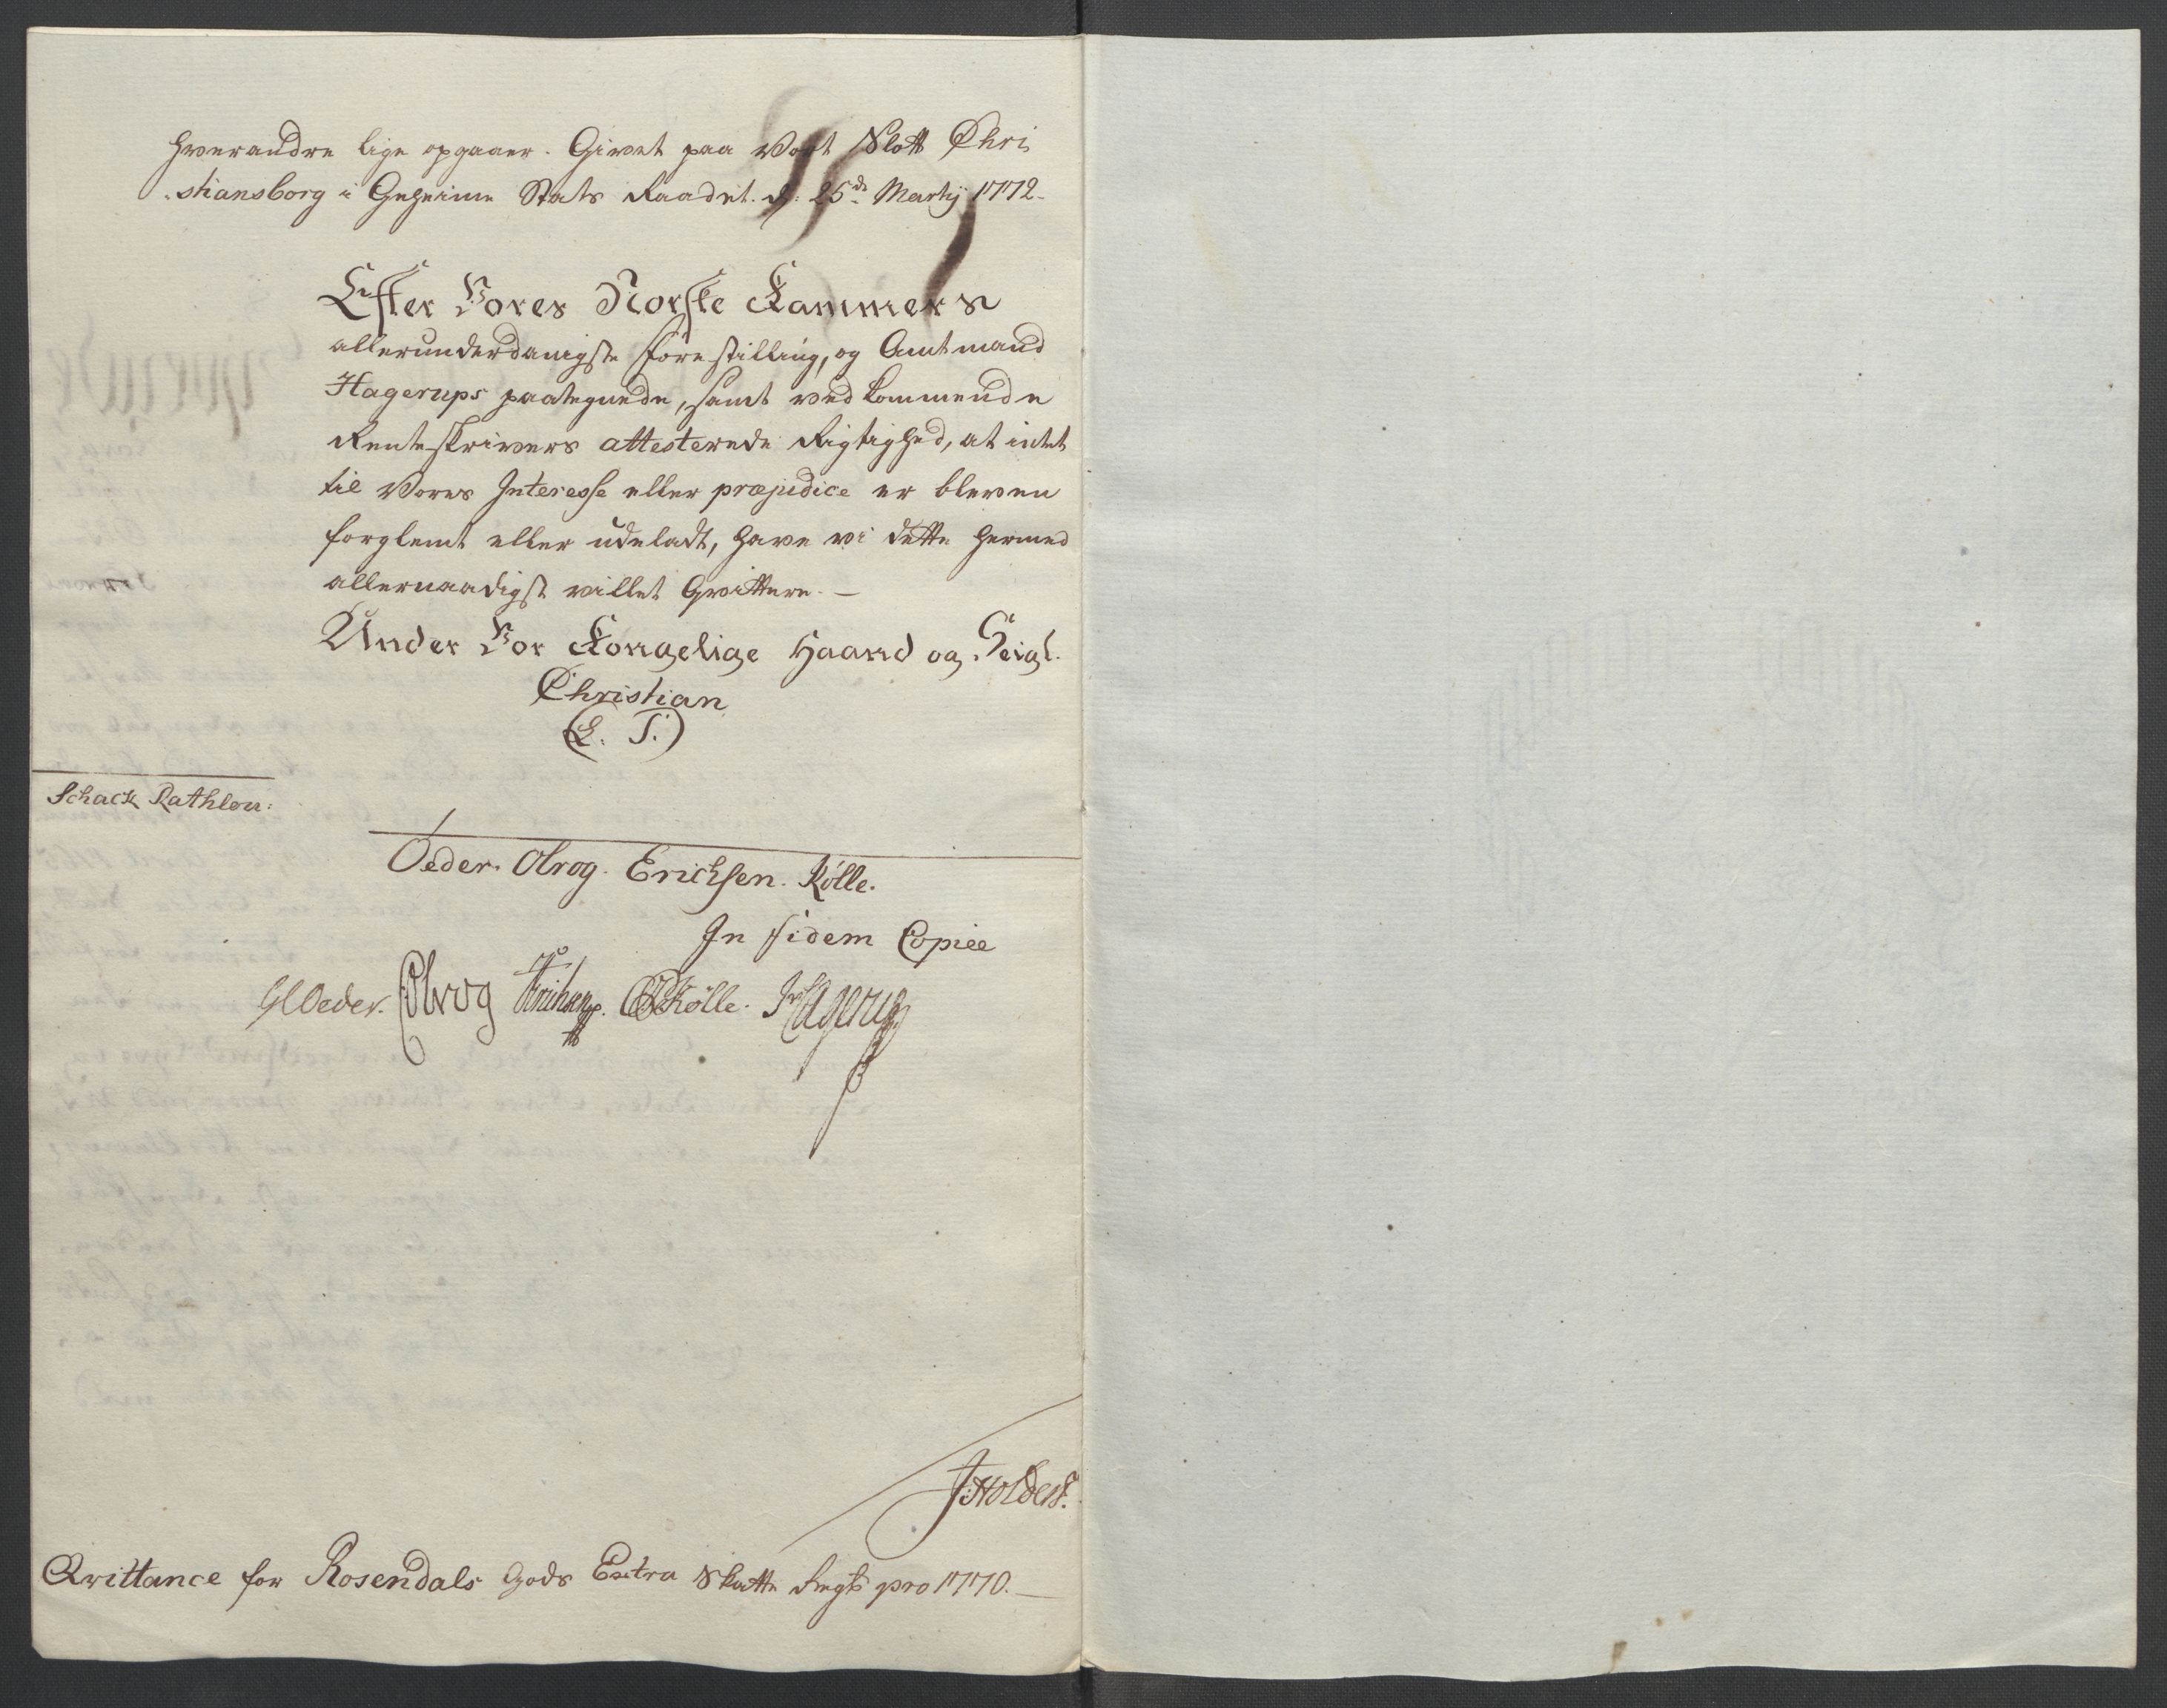 hverandre lige opgaaer. Givet paa Vort Slott Chri
stiansborg i Geheime Stats Raadet. d: 25de Martij 1772-
Efter Vores Norske Kammers
allerunderdanigste forestilling, og Amtmand
Hagerups paategnede, samt vedkommende
Renteskrivers attesterede Rigtighed, at intet
til Vores Interesse eller præjudice er bleven
forglemt eller udeladt, have vi dette hermed
allernaadigst villet Qvittere. —
Under Vor Kongelige Haand og Seigl.
Christian
(L. S.)
Schack Rathlou:
Oeder. Olrog. Erichsen. Kölle.
In fidem Copiee
GCOeder. Olrog Erichsen. Kölle. Hagerup
J: Holders.
Qvittance for Rosendals Gods Extra Skatte Regsk pro 1770. —